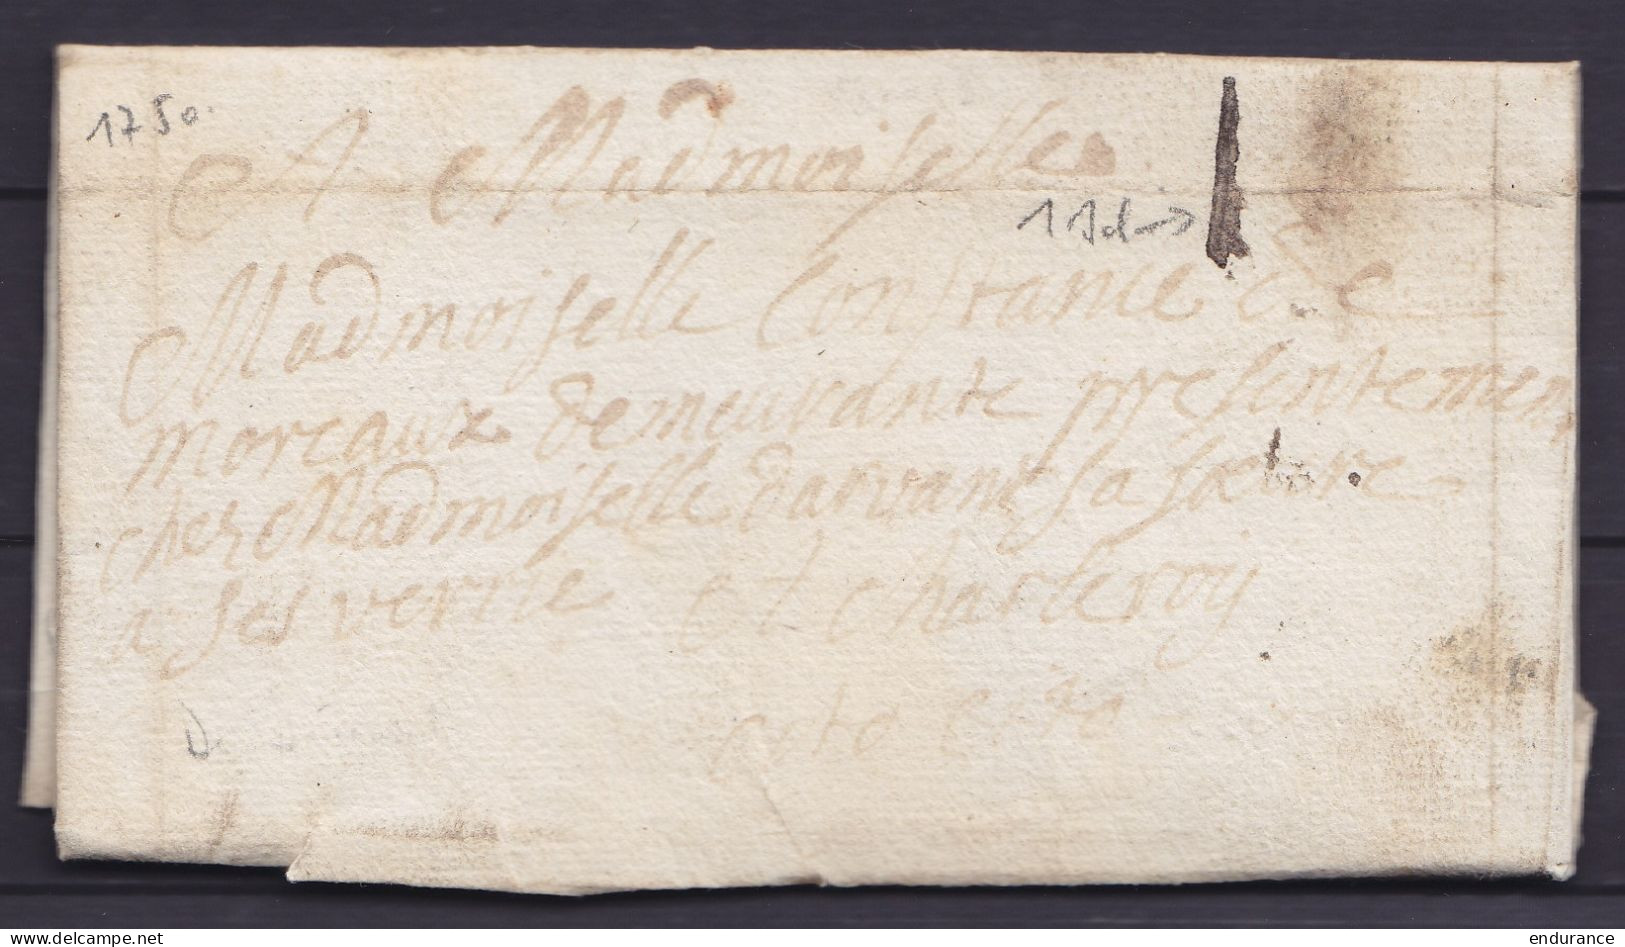 1750.
A Mademoiselle
1 Sol →
Mademoiselle Constance de
moreaux demeurante presentement
chez Mademoiselle darvant sa
a verrie et charleroij
cito cito
delcampe.net
endurance